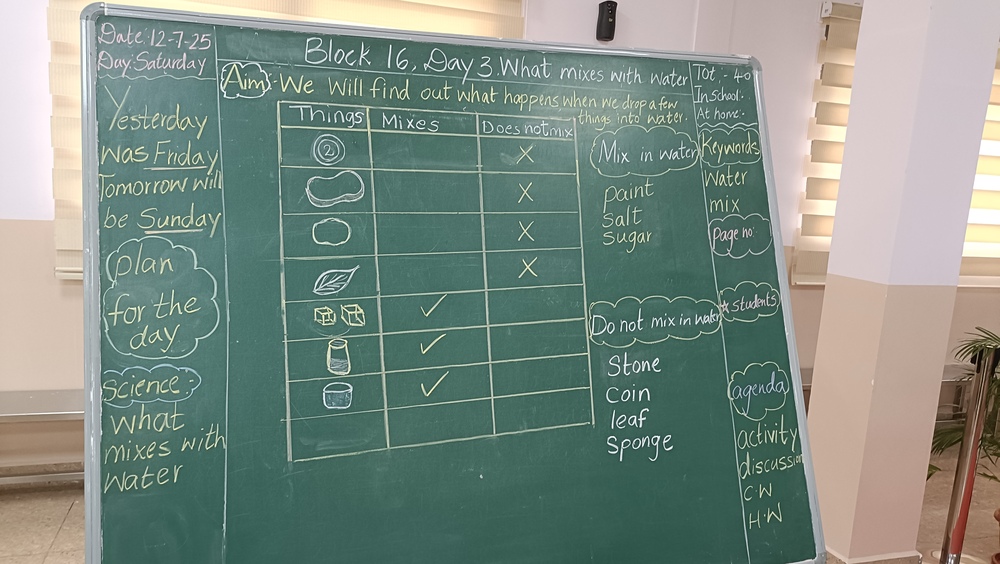 Date:12-7-25
Day:Saturday
Yesterday
was Friday
Tomorrow will
be Sunday
plan
for the
day
Science:-
What
mixes with
water
Block 16, Day 3. What mixes with water
Aim:- We will find out what happens when we drop a few
things into water.
Things Mixes Does not mix
2 X
X
X
X
✓
✓
✓
Mix in water
paint
Salt
Sugar
Do not mix in water
Stone
Coin
leaf
Sponge
Tot:- 40
In school:-
At home:-
Keywords
Water
mix
Page no:
★ students
agenda
activity
discussion
C.W
H.W